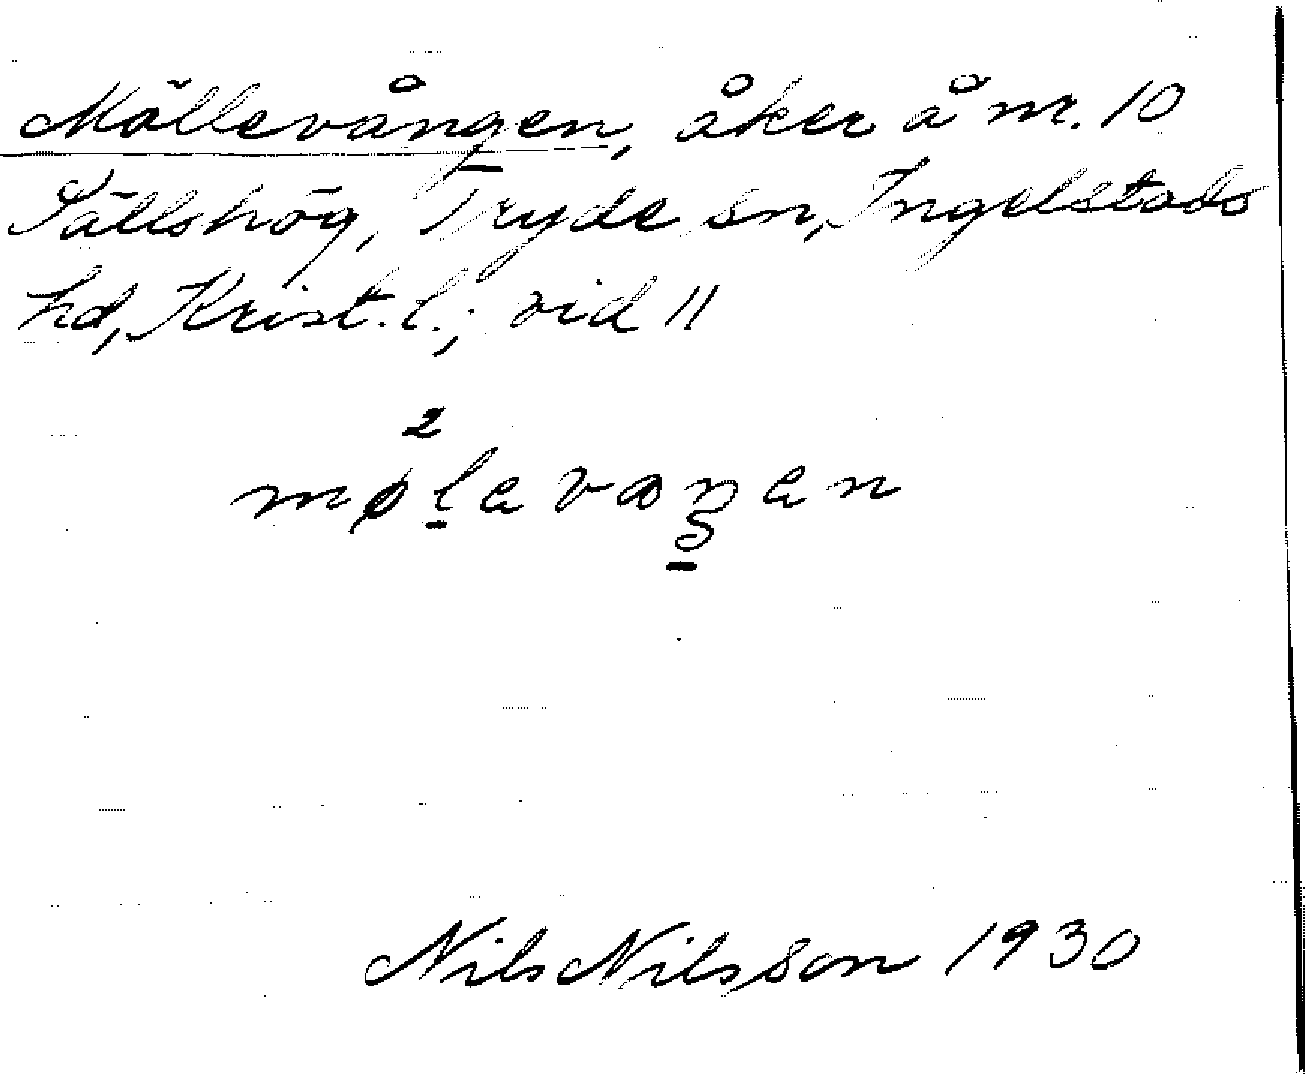 Möllevången, åker å nr. 10
Sällshög, Tryde sn, Ingelstads
hd, Krist. l.; vid 11
2
møḻavaŋ̱an
Nils Nilsson 1930